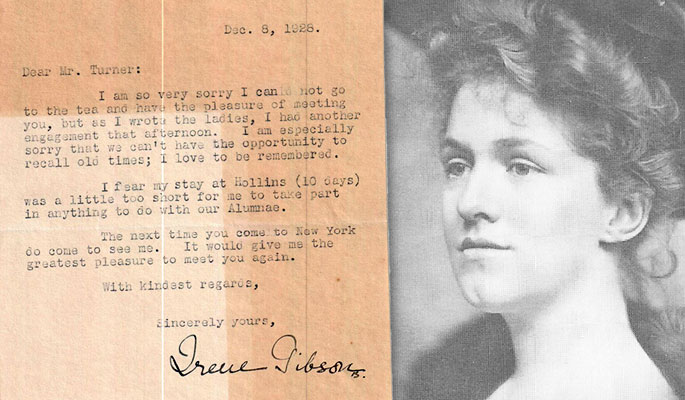 Dec. 8, 1928.
Dear Mr. Turner:
I am so very sorry I could not go
to the tea and have the pleasure of meeting
you, but as I wrote the ladies, I had another
engagement that afternoon. I am especially
sorry that we can't have the opportunity to
recall old times; I love to be remembered.
I fear my stay at Hollins (10 days)
was a little too short for me to take part
in anything to do with our Alumnae.
The next time you come to New York
do come to see me. It would give me the
greatest pleasure to meet you again.
With kindest regards,
Sincerely yours,
Irene Gibson